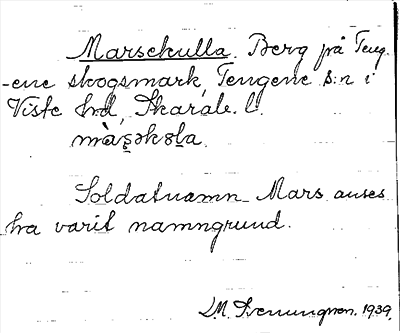 Marsekulla. Berg på Teng-
-ene skogsmark, Tengene s:n i
Viste hd, Skarab. l.
màṣəkɞla.
Soldatnamn Mars anses
ha varit namngrund.
M. 1939.